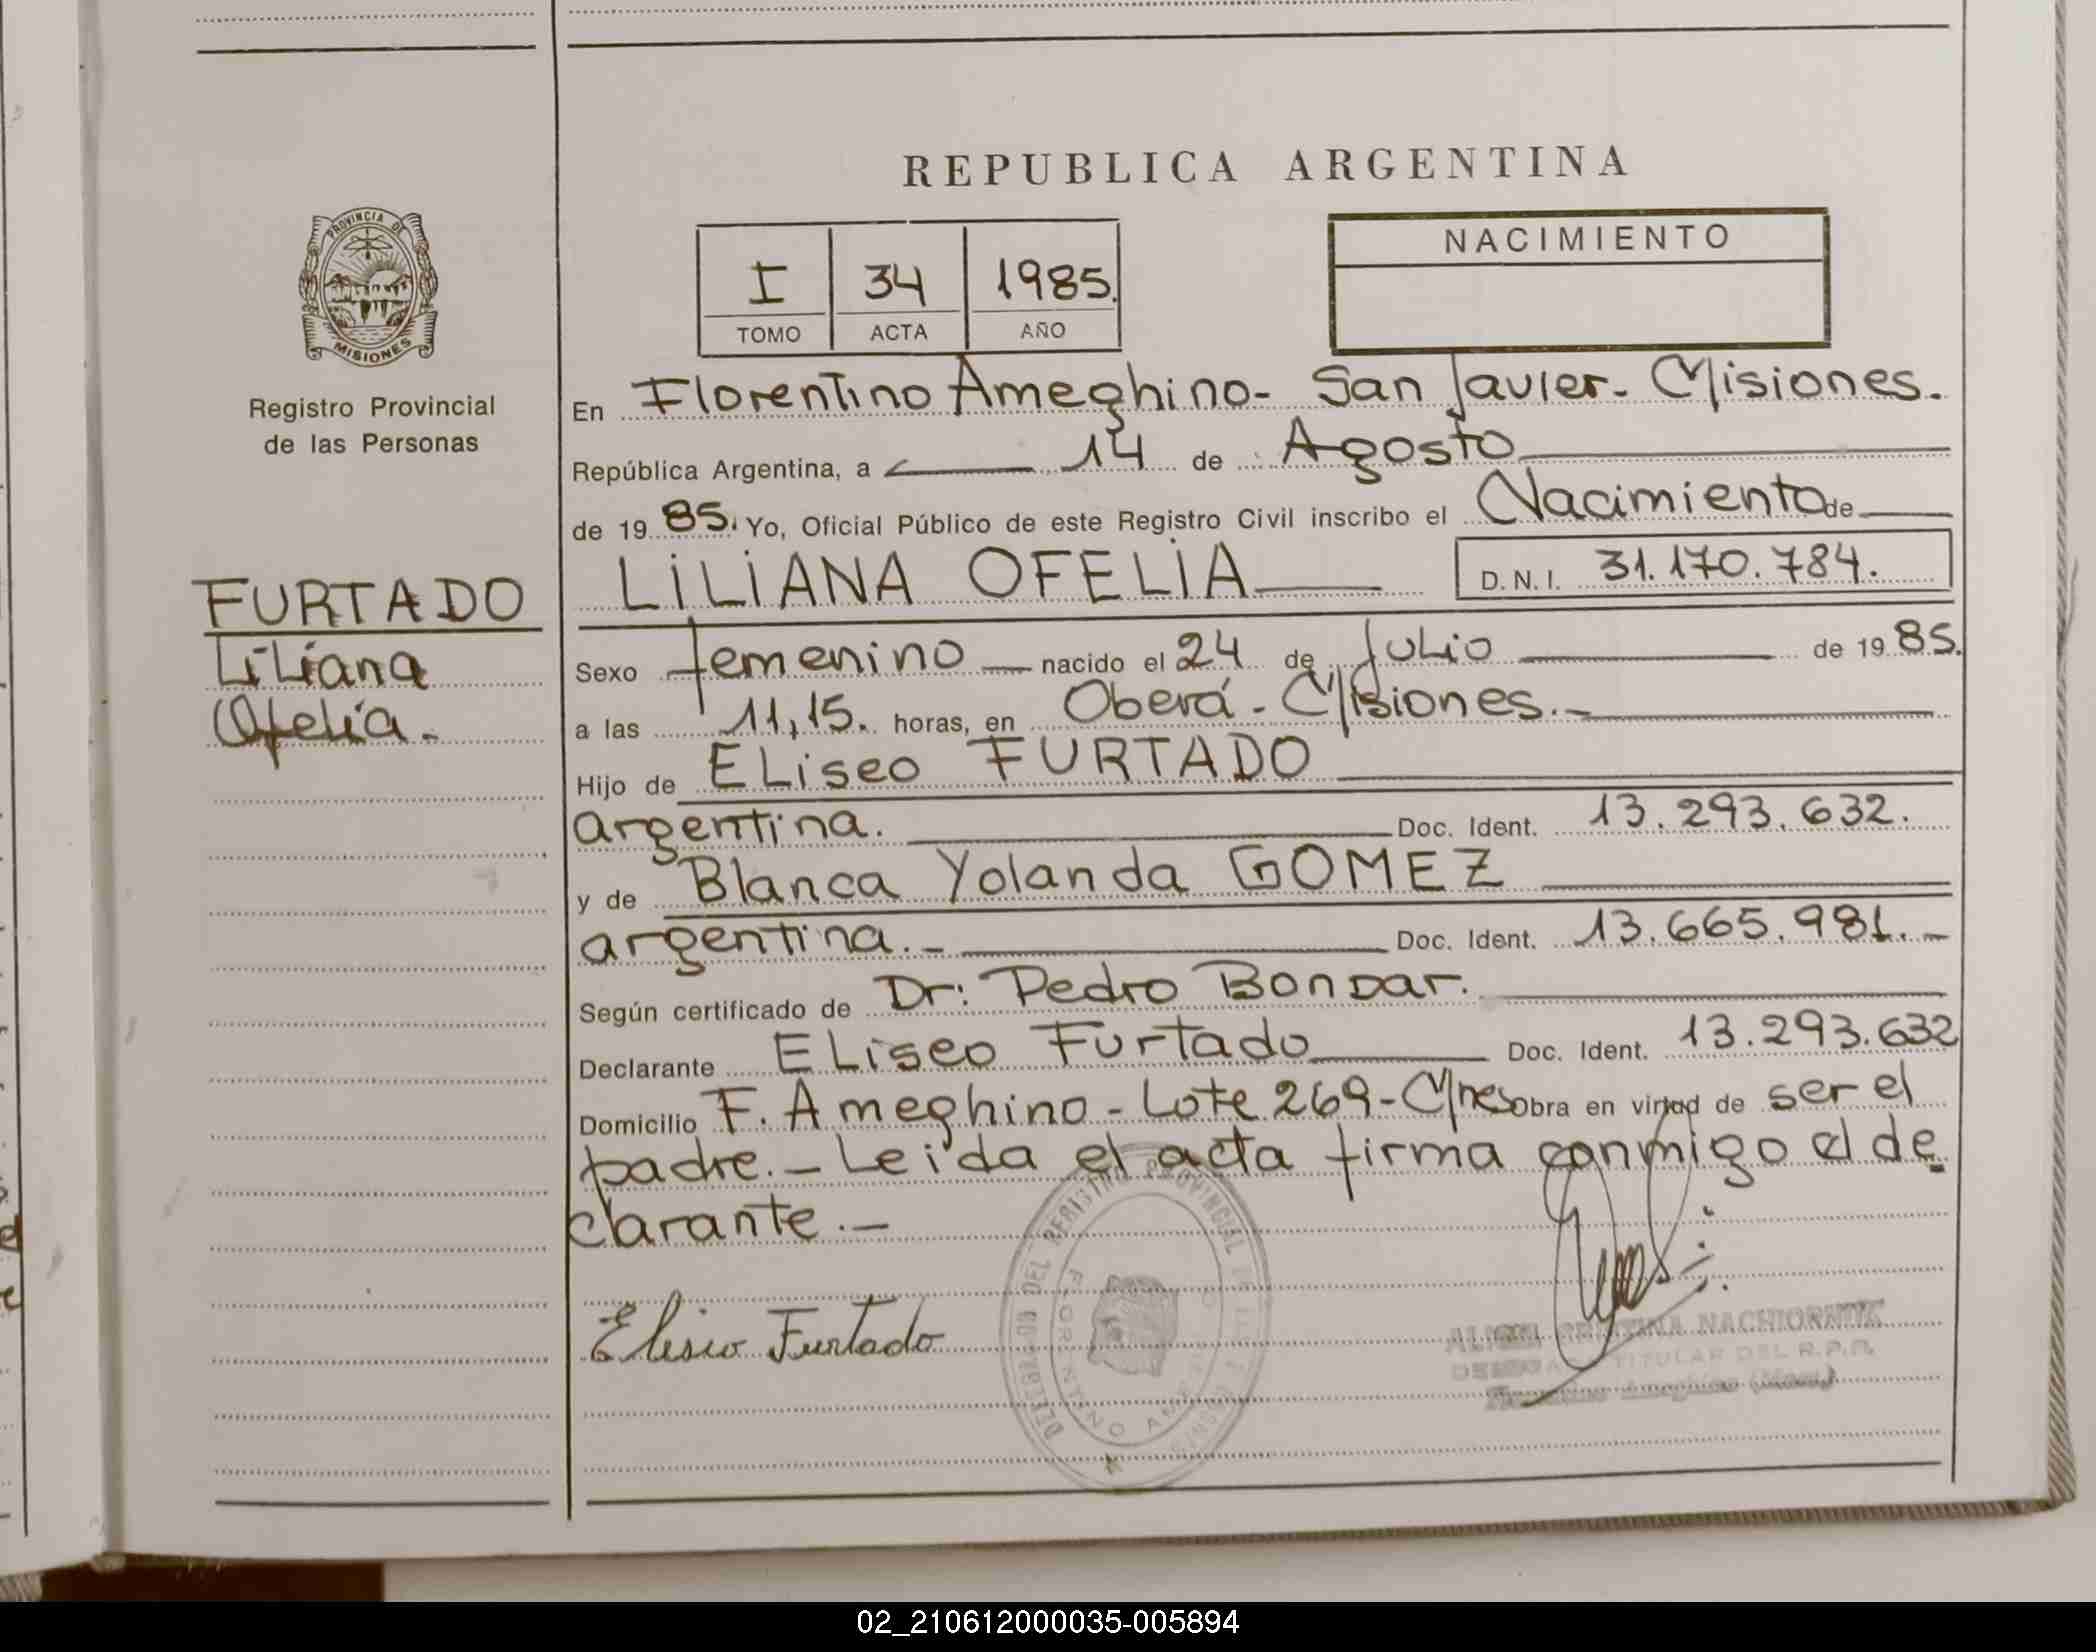 REPUBLICA ARGENTINA
PROVINCIA DE
MISIONES
Registro Provincial
de las Personas
FURTADO
Liliana
Ofelia.
I 34 1985.
TOMO ACTA AÑO
NACIMIENTO
En Florentino Ameghino - San Javier - Misiones.
República Argentina, a 14 de Agosto
de 1985. Yo, Oficial Público de este Registro Civil inscribo el Nacimiento de
LILIANA OFELIA D.N.I. 31.170.784.
Sexo femenino nacido el 24 de Julio de 1985.
a las 11,15. horas, en Oberá - Misiones.-
Hijo de Eliseo FURTADO
argentina. Doc. Ident. 13.293.632.
y de Blanca Yolanda GOMEZ
argentina.- Doc. Ident. 13.665.981.-
Según certificado de Dr: Pedro Bondar.
Declarante Eliseo Furtado Doc. Ident. 13.293.632
Domicilio F. Ameghino - Lote 269 - Mnes Obra en virtud de ser el
padre.- Leida el acta firma conmigo el de
clarante.-
Elisio Furtado
DEL REGISTRO PROVINCIAL DE
FLORENTINO
CRISTINA
TITULAR DEL R.P.P.
Ameghino (Mnes)
02_210612000035-005894